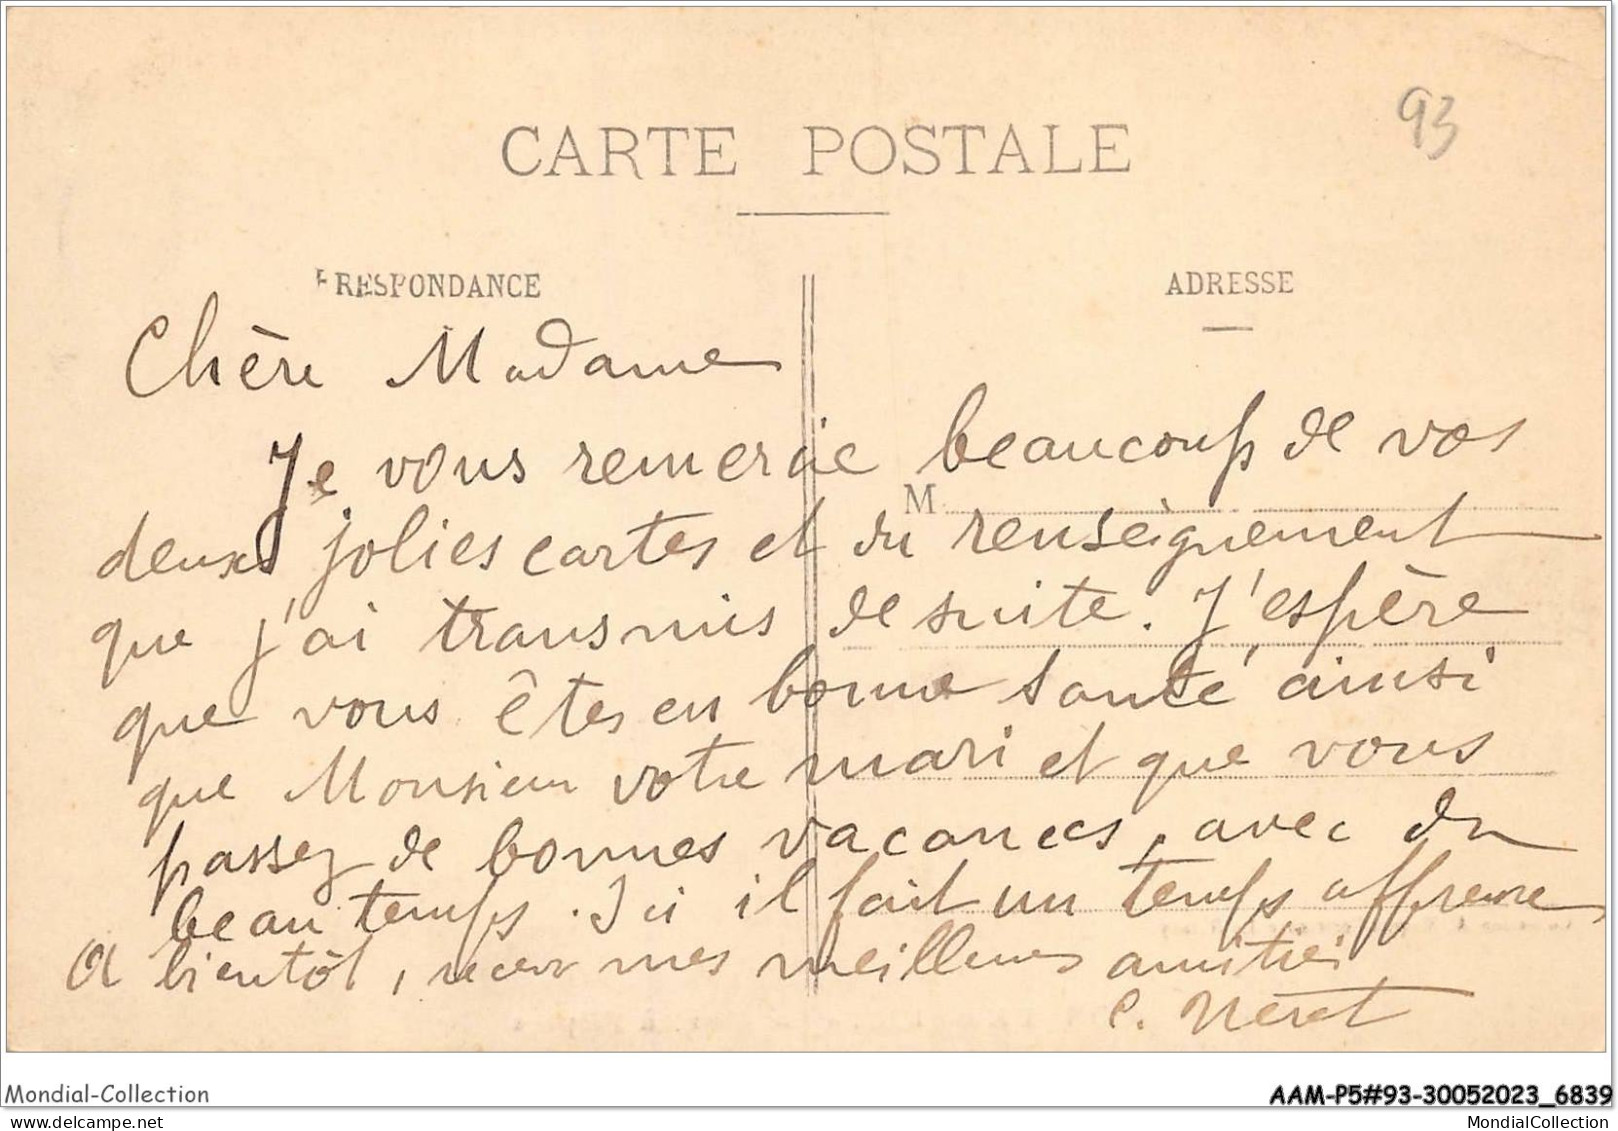 CARTE POSTALE
93
RESPONDANCE
ADRESSE
Chère Madame
Je vous remercie beaucoup de vos
M
deux jolies cartes et du renseignement
que j'ai transmis de suite. J'espère
que vous êtes en bonne santé ainsi
que Monsieur votre mari et que vous
passez de bonnes vacances, avec du
beau temps. Ici il fait un temps affreux
A bientôt, recevez mes meilleures amitiés
C. Néret
Mondial-Collection
AAM-P5#93-30052023_6839
mondial-collection.com
MondialCollection